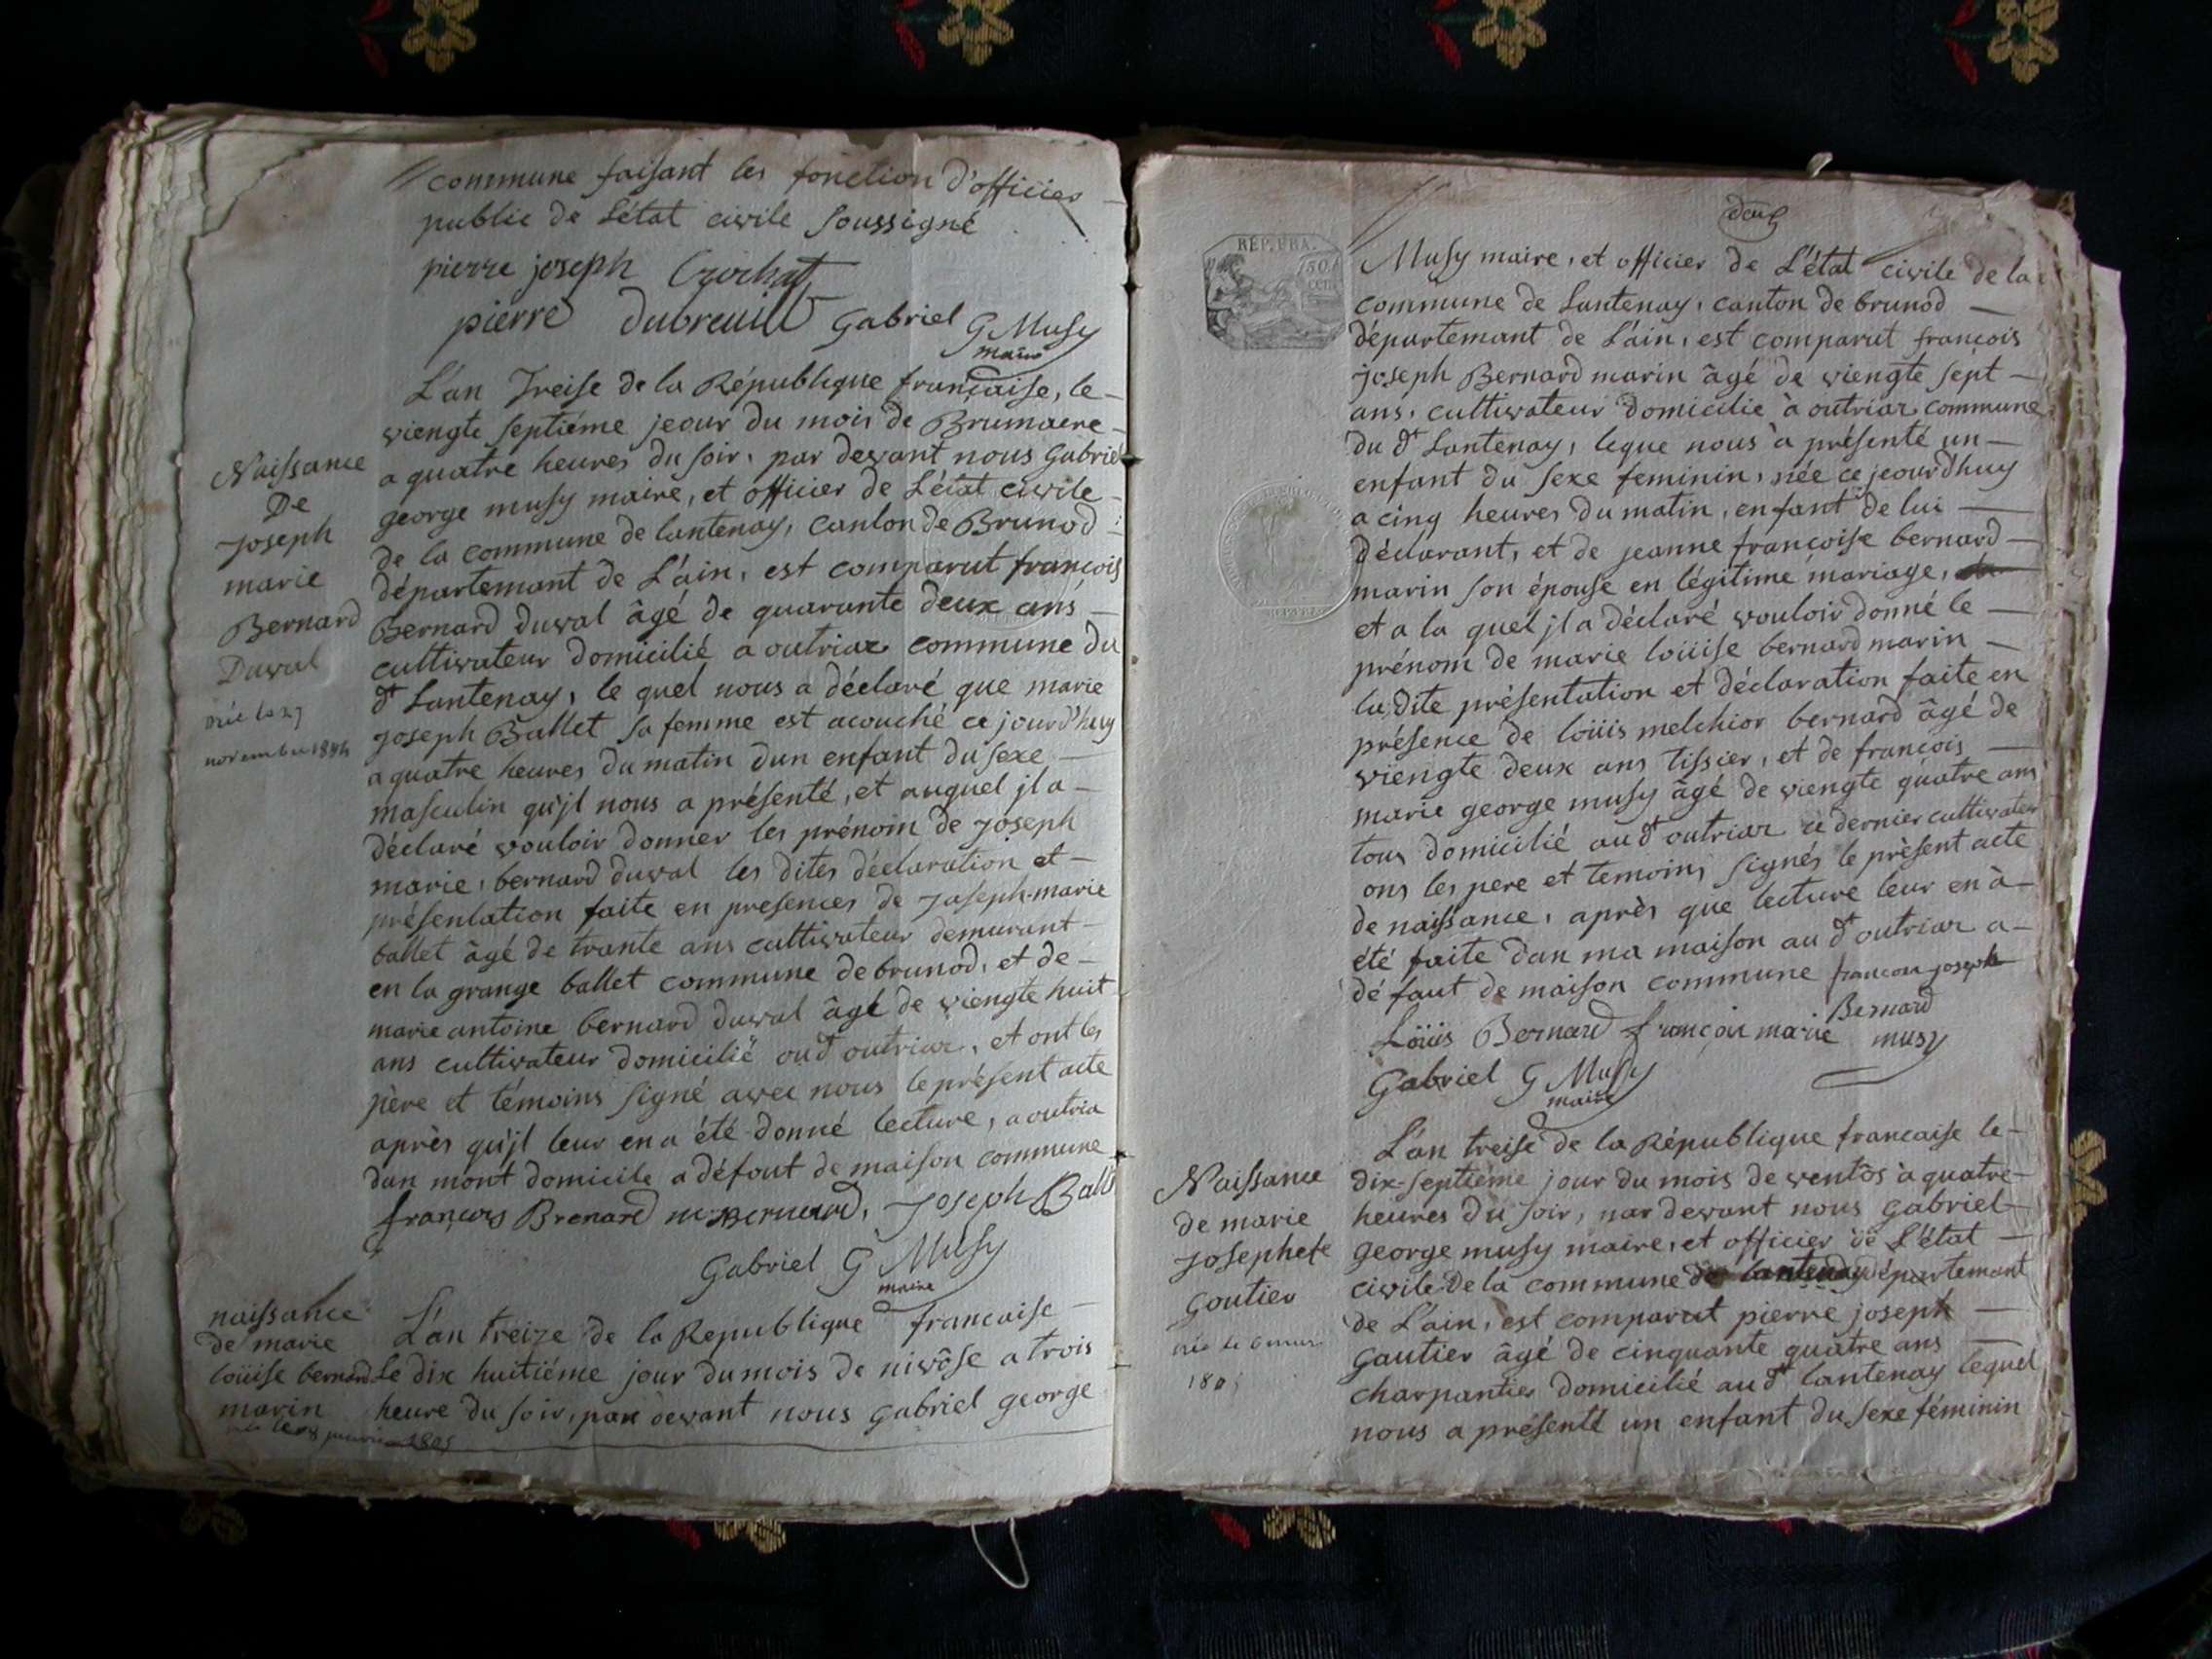 commune faisant les fonction d'officier
public de L'état civile soussigné
pierre joseph Crochat
pierre dubreuill Gabriel G Musy
maire
Naissance
De
Joseph
marie
Bernard
Duval
née le 27
novembre
L'an Treise de la République française, le
viengte septiéme jeour du mois de Brumaere
a quatre heures du soir, par devant nous Gabriel
george musy maire, et officier de L'état civile
de la commune de lantenay, canton de Brunod
départemant de L'áin, est comparut françois
Bernard duval âgé de quarante deux ans
cultivateur domicilié a outriaz commune du
dt Lantenay, le quel nous a déclaré que marie
joseph Ballet sa femme est acouché ce jourd'huy
a quatre heures du matin dun enfant du sexe
masculin qu'jl nous a présenté, et auquel jl a
déclaré vouloir donner les prénoin de joseph
marie, bernard duval les dites déclaration et
présentation faite en presences de Joseph-marie
ballet âgé de trante ans cultivateur demurant
en la grange ballet commune de brunod, et de
marie antoine bernard duval âgé de viengte huit
ans cultivateur domicilié oudt outriaz, et ont les
père et témoins signé avec nous le présent acte
après qu'jl leur en a été donné lecture, a outria
dan mont domicile a défout de maison commune
françois Brenard m Bernard, Joseph Ball
Gabriel G Musy
maire
naissance
de marie
loüise bernard
marin
janvier 1805
L'an treize de la Republique francaise
Le dix huitiéme jour du mois de nivôse a trois
heure du soir, par devant nous gabriel george
deux
REP. FRA.
50
CEN
Musy maire, et officier de L'état civile de la
commune de Lantenay, canton de brunod
départemant de L'áin, est comparut françois
joseph Bernard marin âgé de viengte sept
ans, cultivateur domicilié à outriaz commune
du dt Lantenay, leque nous à présenté un
enfant du sexe feminin, née ce jeourdhuy
a cinq heures du matin, enfant de lui
déclarant, et de jeanne françoise bernard
marin son épouse en légitime mariage,
et a la quel jl a déclaré vouloir donné le
prénom de marie loüise bernard marin
la dite présentation et déclaration faite en
présence de loüis melchior bernard âgé de
viengte deux ans tissier, et de françois
marie george musy âgé de viengte quatre ans
tous domicilié audt outriaz ce dernier cultivateur
ons les pere et temoins signés le present acte
de naissance, après que lecture leur en à
été faite dan ma maison au dt outriaz a
défaut de maison commune francois joseph
Bernard
Loüis Bernard françois marie musy
Gabriel G Musy
maire
Naissance
de marie
Josephete
Goutier
née le 6 mars
L'an treise de la République francaise le
dix-septiéme jour du mois de ventôs à quatre
heures du soir, par devant nous gabriel
george musy maire, et officier de L'état
civile de la commune de lantenay départemant
de L'ain, est comparut pierre joseph
gautier âgé de cinquante quatre ans
charpantier domicilié au dt lantenay lequel
nous a présenté un enfant du sexe féminin